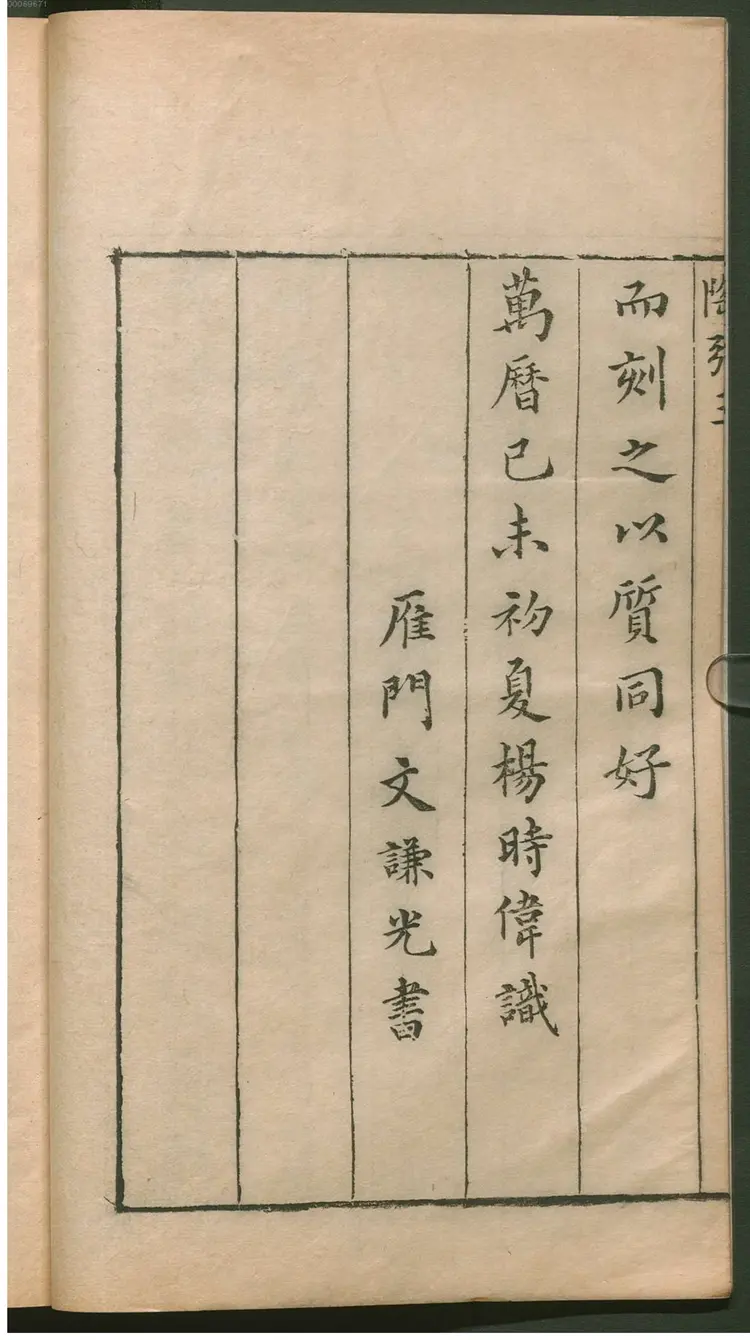 00069671
而刻之以質同好
萬曆己未初夏楊時偉識
雁門文謙光書